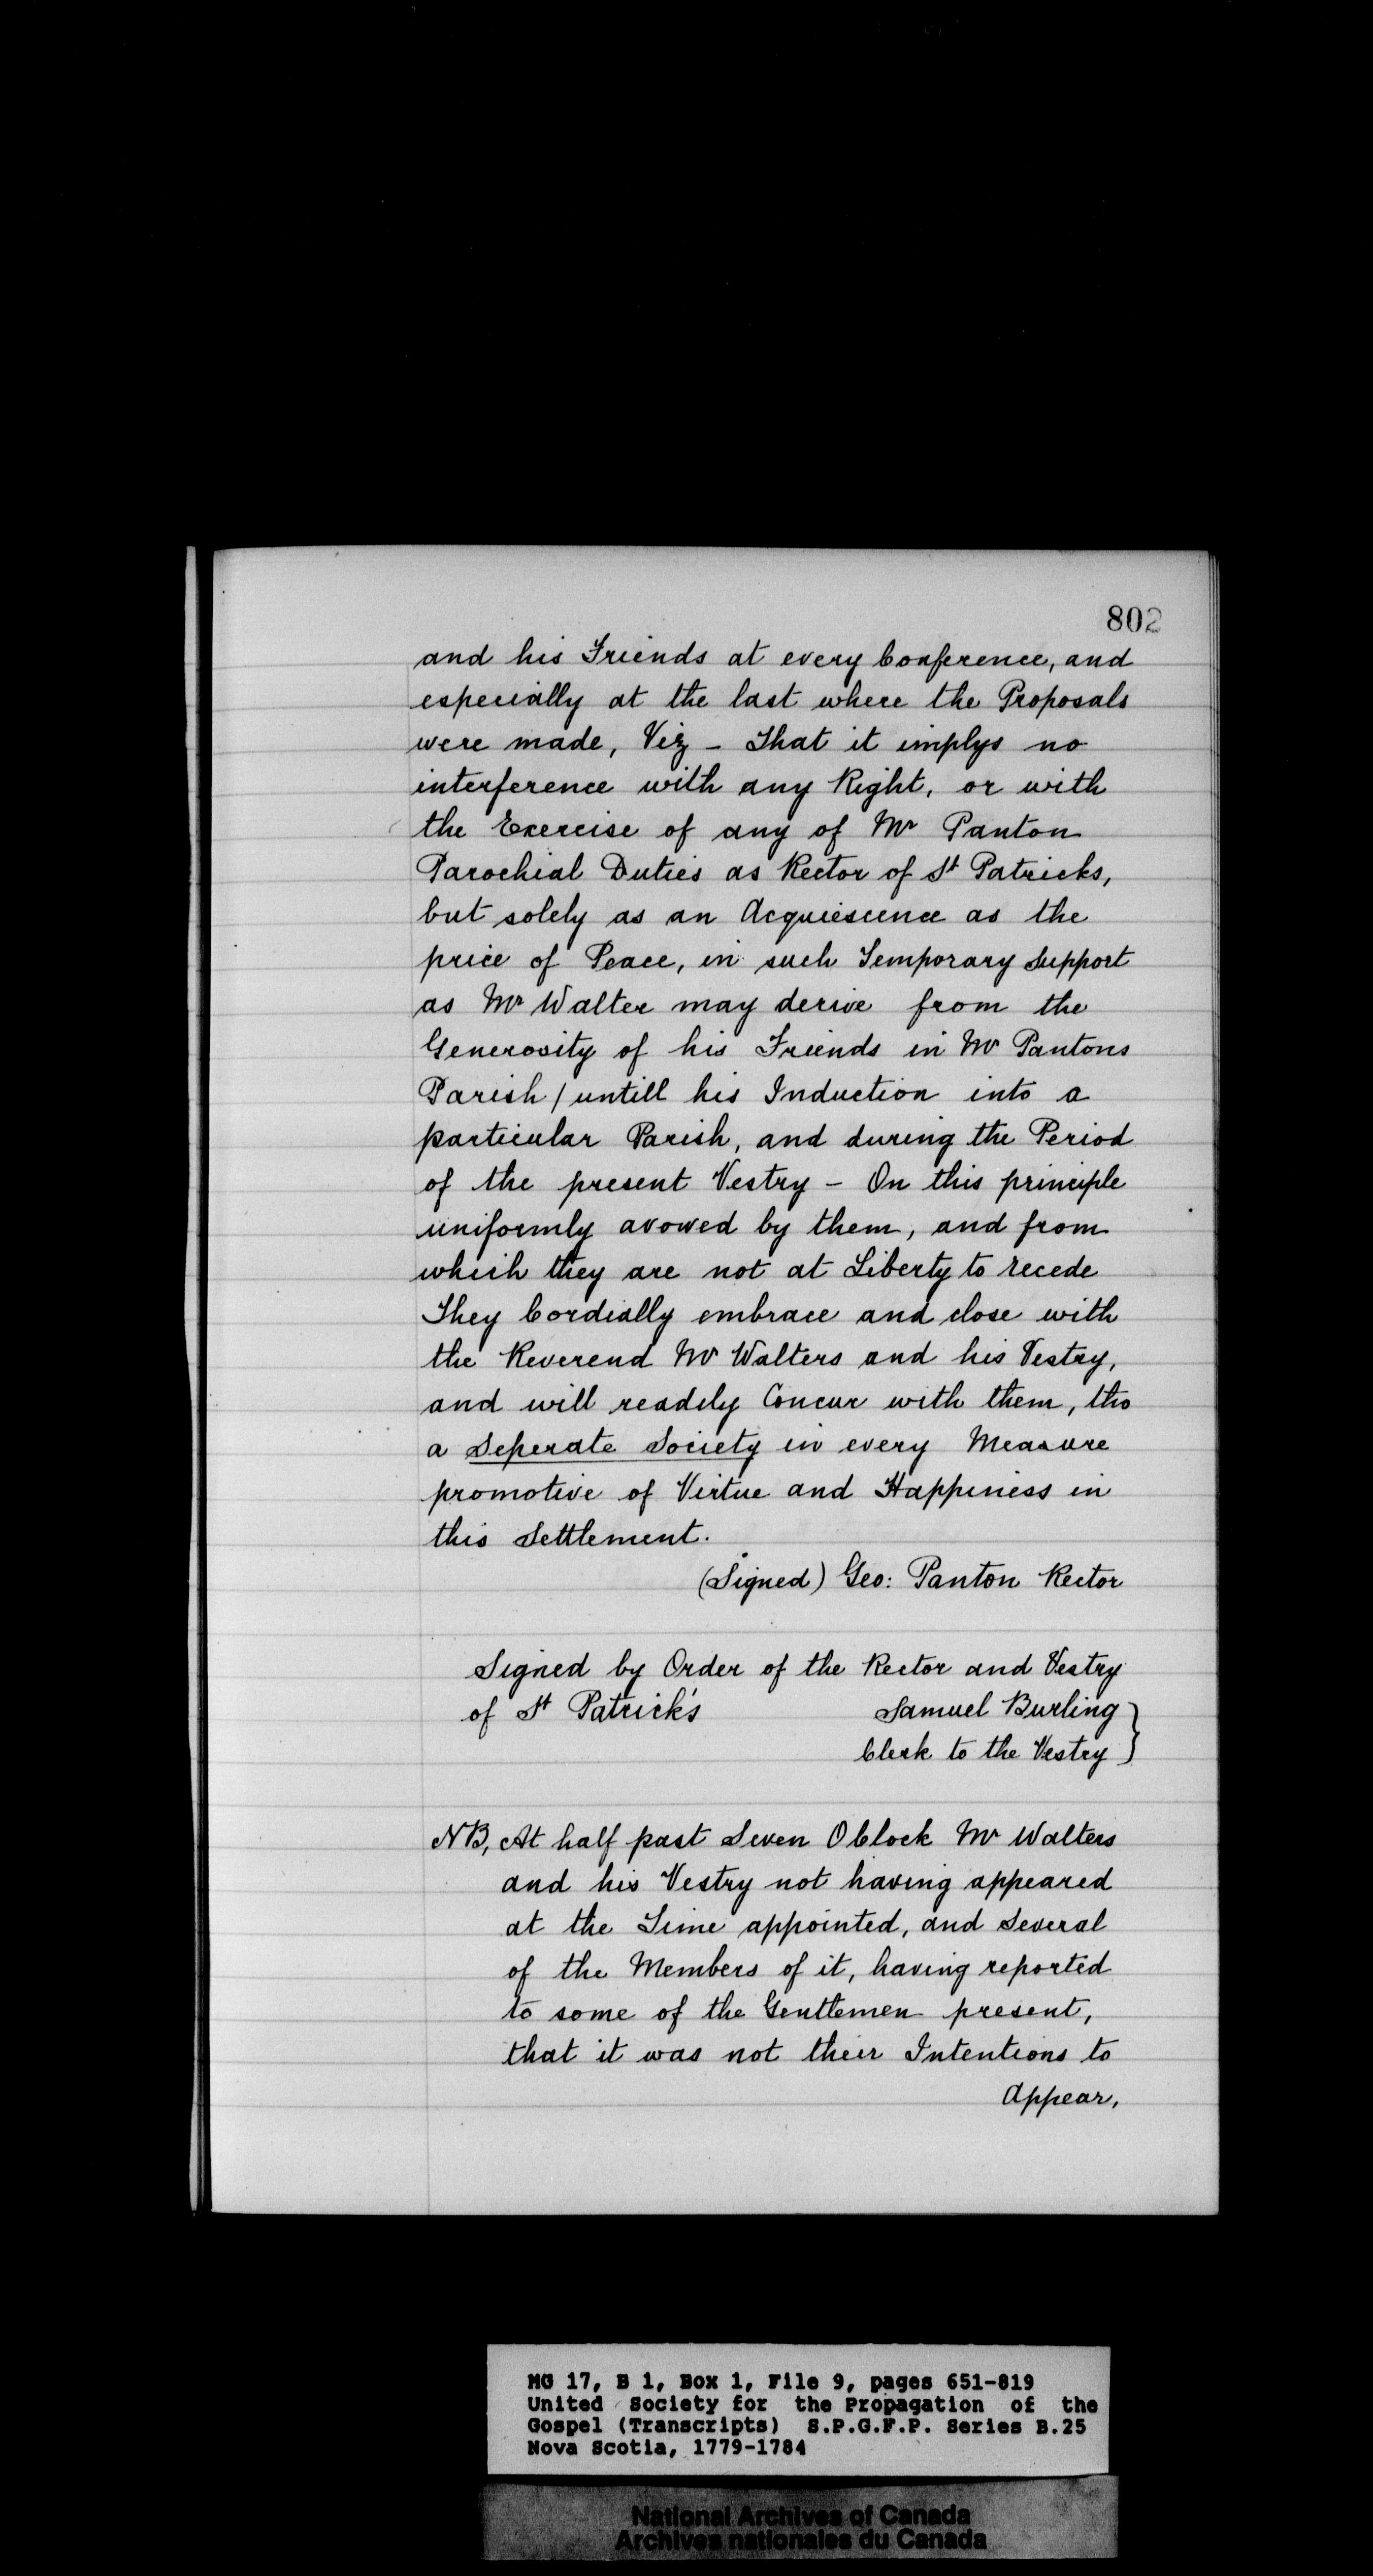 802
and his Friends at every Conference, and
especially at the last where the Proposals
were made, Viz – That it implys no
interference with any Right, or with
the Exercise of any of Mr Panton
Parochial Duties as Rector of St Patricks,
but solely as an Acquiescence as the
price of Peace, in such Temporary Support
as Mr Walter may derive from the
Generosity of his Friends in Mr Pantons
Parish / untill his Induction into a
particular Parish, and during the Period
of the present Vestry – On this principle
uniformly avowed by them, and from
which they are not at Liberty to recede
They Cordially embrace and close with
the Reverend Mr Walters and his Vestry,
and will readily Concur with them, tho
a Seperate Society in every Measure
promotive of Virtue and Happiness in
this Settlement.
(Signed) Geo: Panton Rector
Signed by Order of the Rector and Vestry
of St Patrick's Samuel Burling }
Clerk to the Vestry }
NB, At half past Seven OClock Mr Walters
and his Vestry not having appeared
at the Time appointed, and Several
of the Members of it, having reported
to some of the Gentlemen present,
that it was not their Intentions to
Appear,
MG 17, B 1, Box 1, File 9, pages 651-819
United Society for the Propagation of the
Gospel (Transcripts) S.P.G.F.P. Series B.25
Nova Scotia, 1779-1784
National Archives of Canada
Archives nationales du Canada